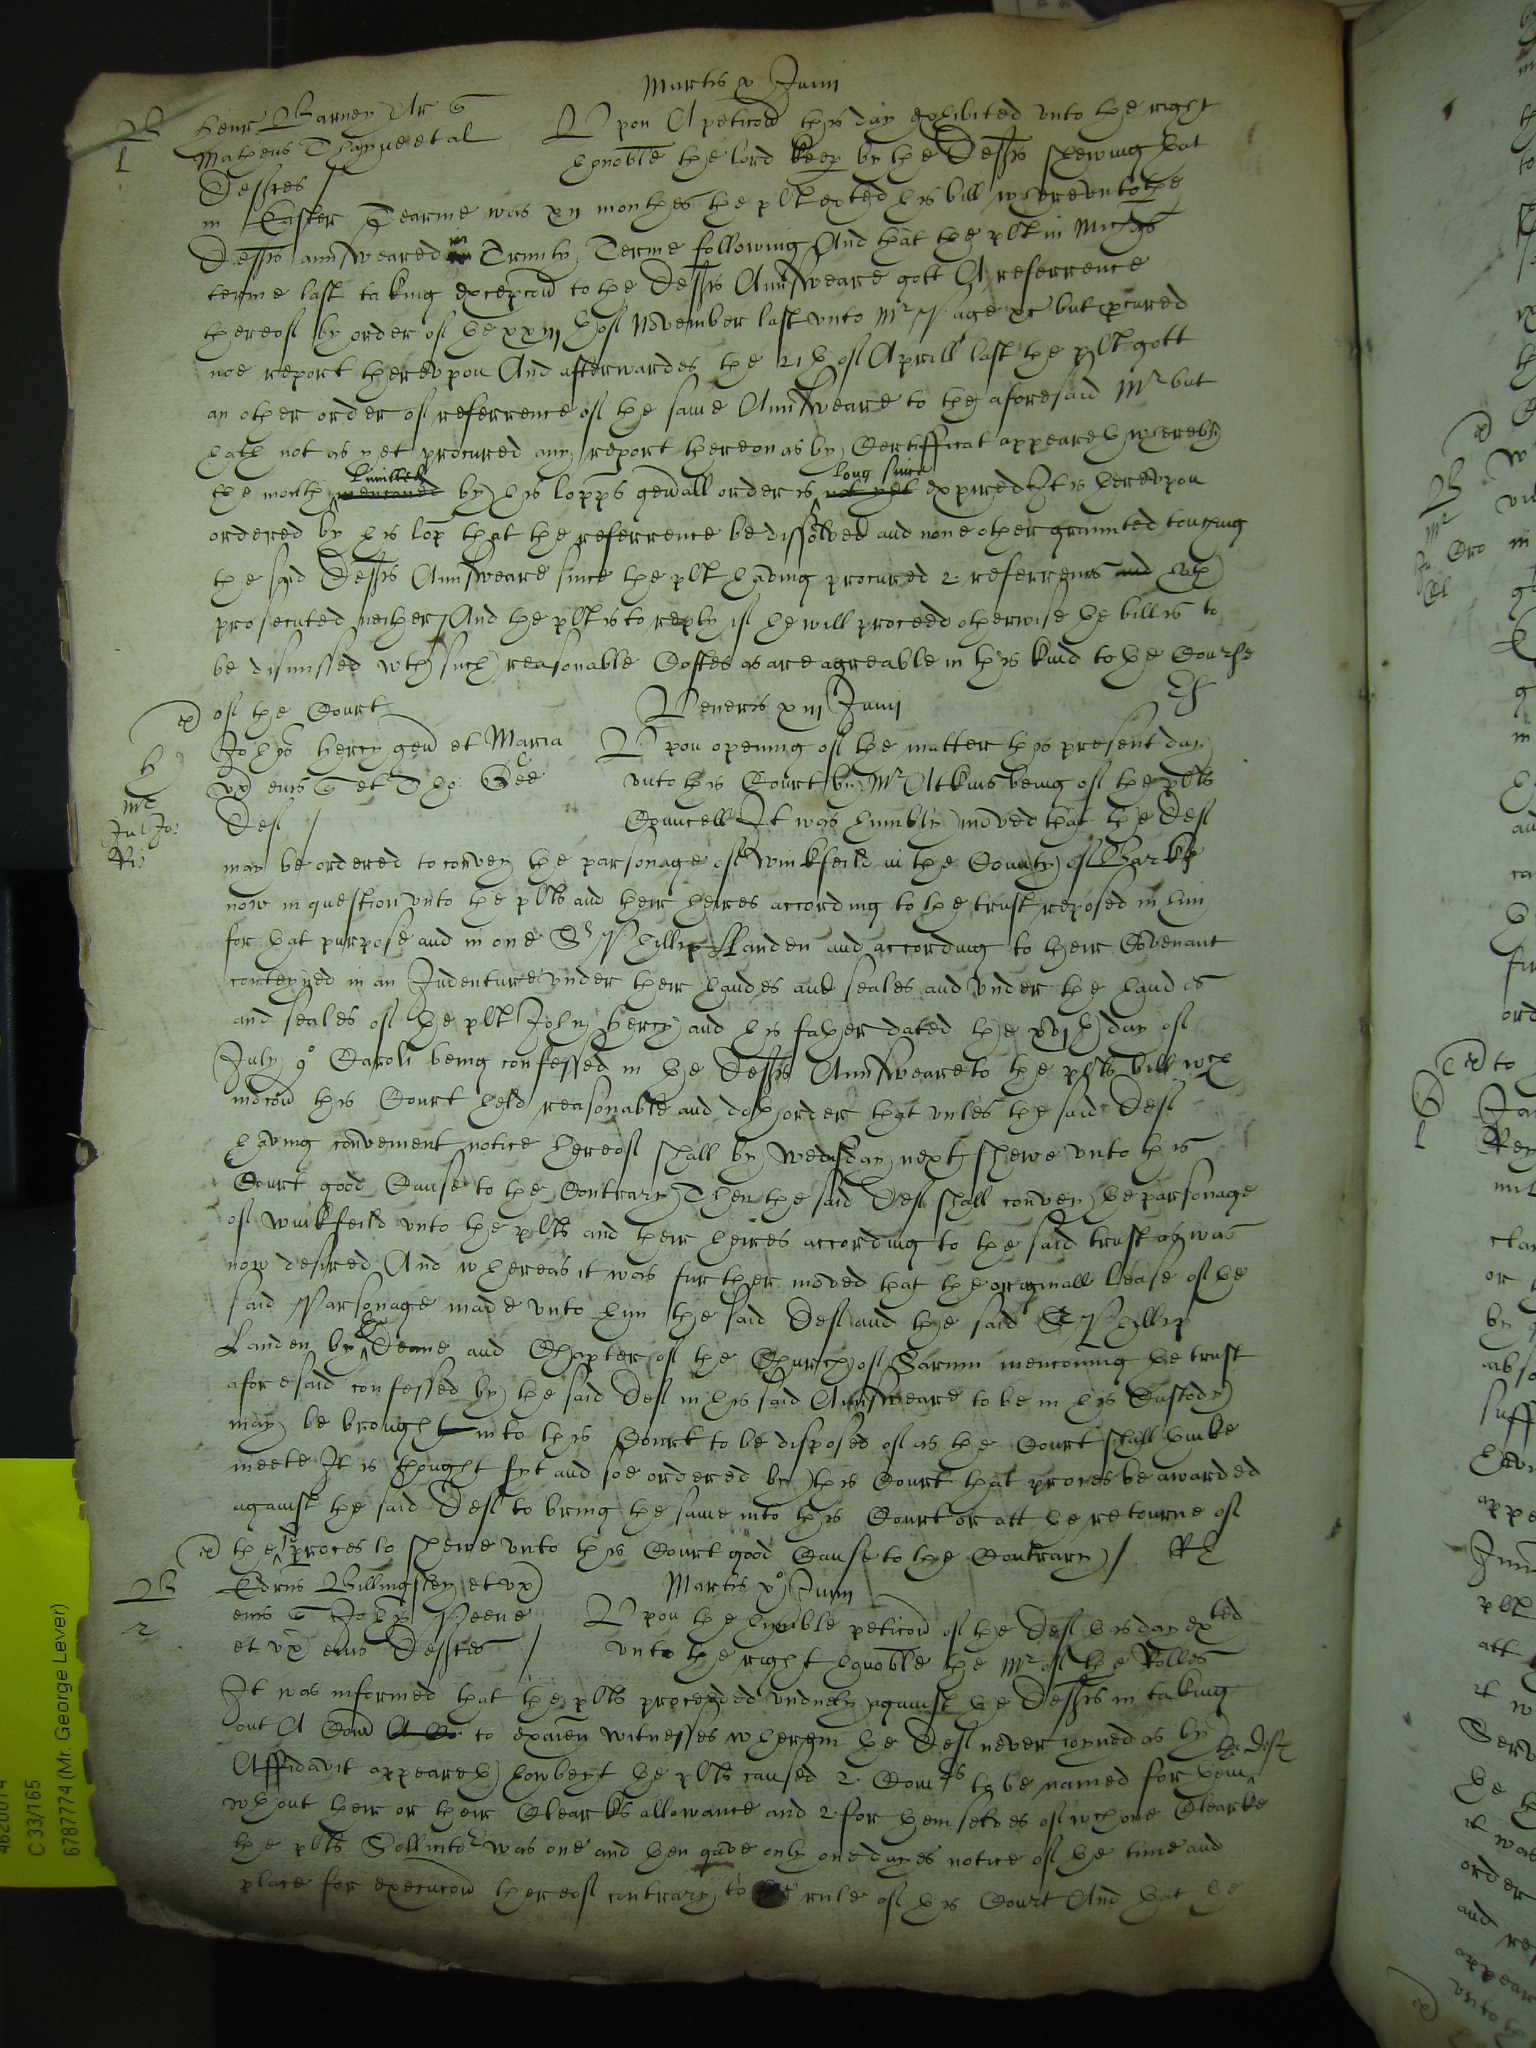 Martis x Junij
B
1
Henr Barney Ar q
Matheus Thayne et al
Defftes /
Upon A peticon this day exhibited unto the right
honoble the lord keep by the Defftes shewing that
in Easter Tearme was xij monthes the plt exted his bill whereunto the
Defftes aunsweared in Trinity Terme following And that the plt in Michas
terme last taking excepcon to the Defftes Aunsweare gott A referrence
thereof by order of the xxiij th of November last unto Mr Page &c but pcured
noe report thereupon And afterwardes the 21th of Aprill last the plt gott
an other order of referrence of the same Aunsweare to the aforesaid Mr but
hath not as yet procured any report thereon as by Certifficat appeareth whereby
the month Limitted by his lopps genall order is long since expired It is hereupon
ordered by his lopp that the referrence be dissolved and none other graunted touching
the said Defftes Aunsweare since the plt having procured 2 referrences hath
prosecuted neither / And the plt is to reply if he will proceed otherwise the bill is to
be dismissed wth such reasonable Costes as are agreable in this kind to the Course
of the Court
Veneris xiij Junij
H
Mr
Jul Jo:
Johes Hercy gen et Maria
ux eius q et Tho: Gee
Def /
Upon opening of the matter this present day
unto this Court by Mr Atkins being of the plts
Councell It was humbly moved that the Def
may be ordered to convey the parsonage of Winkfeild in the County of Barks
now in question unto the plts and their heires according to the trust reposed in him
for that purpose and in one Sr Phillip Landen and according to their Covenant
conteyned in an Indenture under their handes and seales and under the handes
and seales of the plt John Hercy and his father dated the xvjth day of
July 9o Caroli being confessed in the Defftes Aunsweare to the plts bill wch
mocon this Court held reasonable and doth order that unles the said Def
having convenient notice hereof shall by Wedsday next shewe unto this
Court good Cause to the Contrary Then the said Def shall convey the parsonage
of Winkfeild unto the plts and their heires according to the said trust as was
now desired And whereas it was further moved that the originall lease of the
said Parsonage made unto him the said Def and the said Sr Phillip
Landen by the Deane and Chapter of the Church of Sarum mencoining the trust
aforesaid confessed by the said Def in his said Aunsweare to be in his Custody
may be brought into this Court to be disposed of as the Court shall thinke
meete It is thought fyt and soe ordered by this Court that proces be awarded
against the said Def to bring the same into this Court or att the retourne of
the sd proces to shewe unto this Court good Cause to the Contrary /
B
2
Edrus Billingsley et ux
eius q Johes Peene
et ux eius Defftes /
Martis xo Junij
Upon the humble peticon of the Def this day exted
unto the right honoble the Mr of the Rolles
It was informed that the plts proceeded unduely against the Defftes in taking
out A Com to examen witnesses wherein the Def never joyned as by the Defts
Affidavit appeareth howbeyt the plts caused 2 Comrs to be named for them
wthout their or their Clearks allowance and 2 for themselves of wch one Clearke
the plts Sollicitr was one and then gave only one dayes notice of the time and
place for execucon thereof contrary to the rule of this Court And that the
C33/165
6787774 (Mr. George Lever)